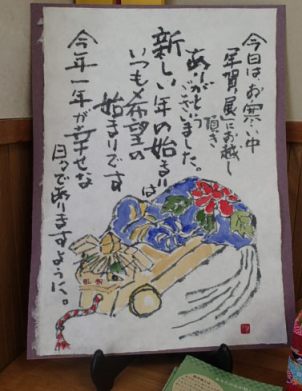 今日は、お寒い中
年賀展にお越し
頂き
ありがとう
ございました。
新しい年の始まりは
いつも希望の
始まりです
今年一年が幸せな
日々でありますように。